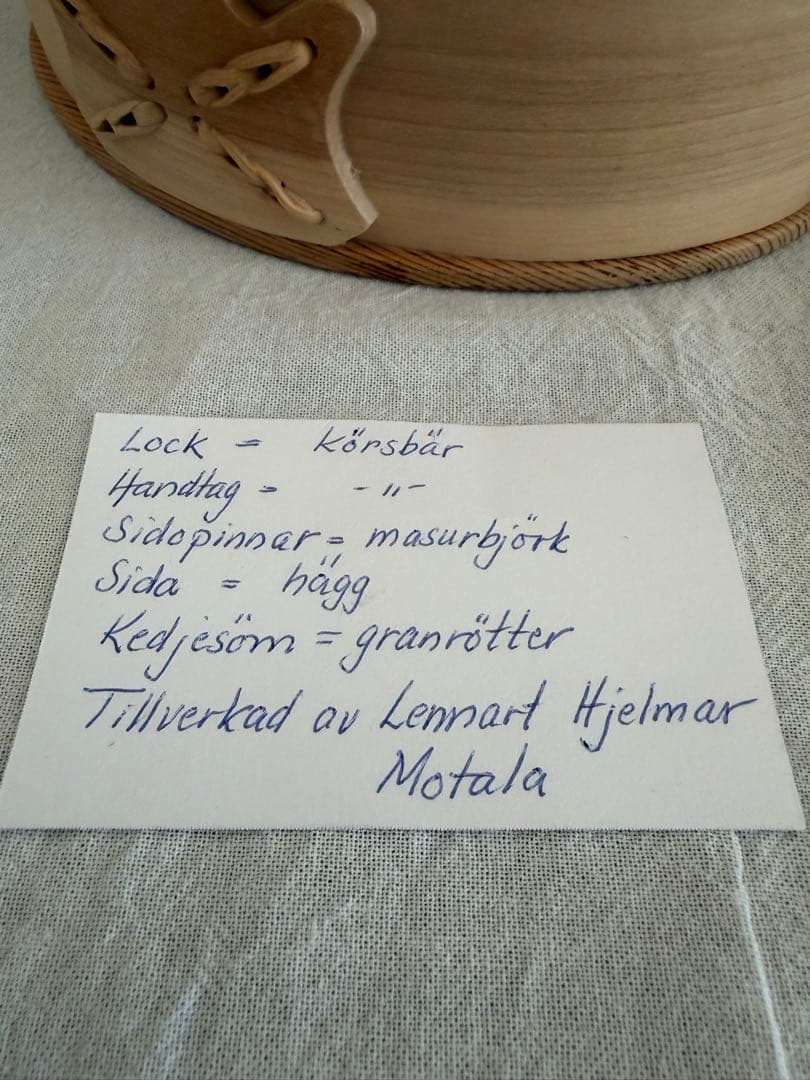 Lock = körsbär
Handtag = - 〃 -
Sidopinnar = masurbjörk
Sida = hägg
Kedjesöm = granrötter
Tillverkad av Lennart Hjelmar
Motala